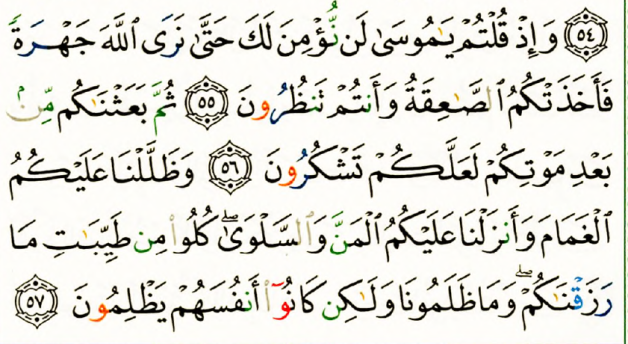 ﴿٥٤﴾ وَإِذْ قُلْتُمْ يَٰمُوسَىٰ لَن نُّؤْمِنَ لَكَ حَتَّىٰ نَرَى ٱللَّهَ جَهْرَةً
فَأَخَذَتْكُمُ ٱلصَّٰعِقَةُ وَأَنتُمْ تَنظُرُونَ ﴿٥٥﴾ ثُمَّ بَعَثْنَٰكُم مِّنۢ
بَعْدِ مَوْتِكُمْ لَعَلَّكُمْ تَشْكُرُونَ ﴿٥٦﴾ وَظَلَّلْنَا عَلَيْكُمُ
ٱلْغَمَامَ وَأَنزَلْنَا عَلَيْكُمُ ٱلْمَنَّ وَٱلسَّلْوَىٰ ۖ كُلُوا۟ مِن طَيِّبَٰتِ مَا
رَزَقْنَٰكُمْ ۖ وَمَا ظَلَمُونَا وَلَٰكِن كَانُوٓا۟ أَنفُسَهُمْ يَظْلِمُونَ ﴿٥٧﴾